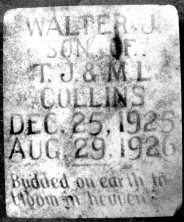 WALTER J.
SON OF
T. J. & M. L.
COLLINS
DEC. 25, 1925
AUG. 29, 1926
Budded on earth to
bloom in heaven.